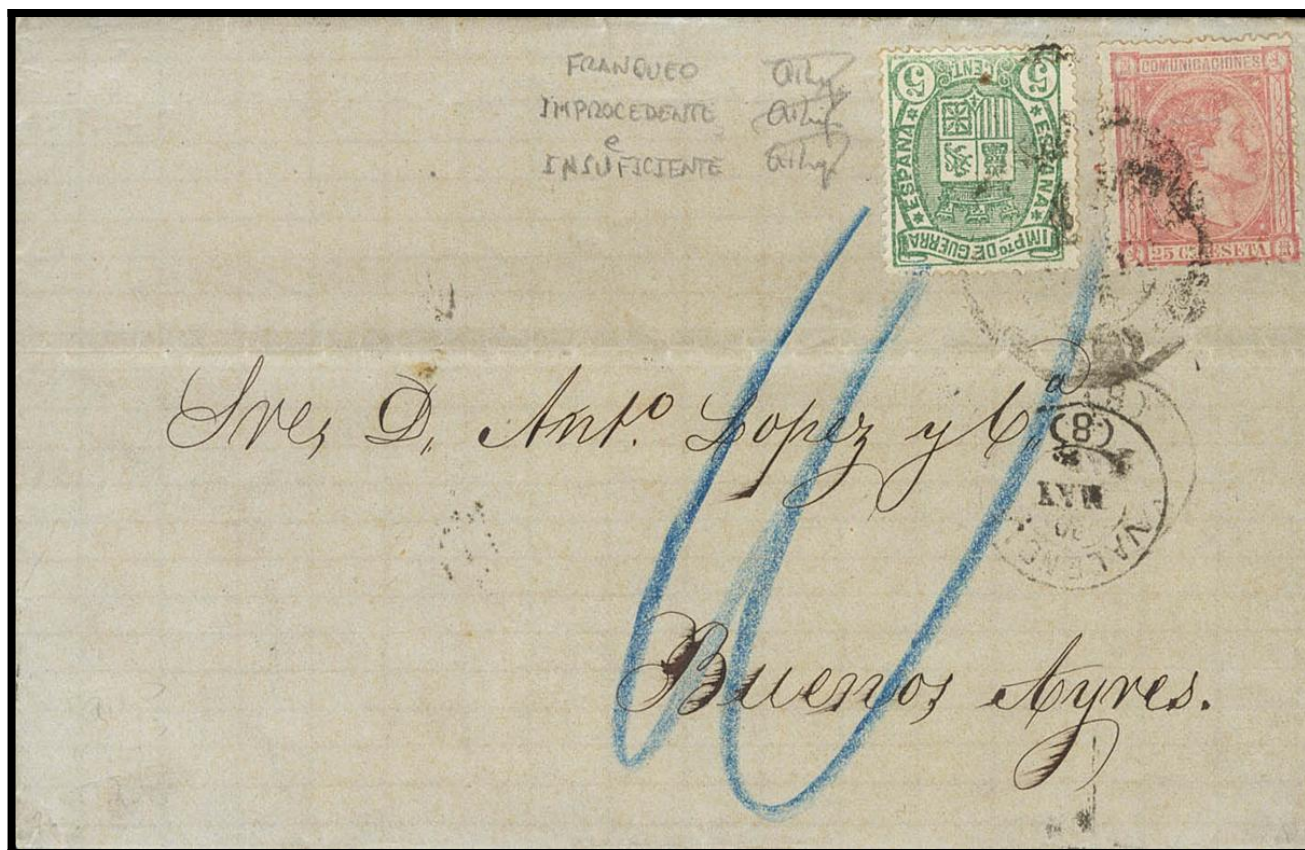 FRANQUEO
IMPROCEDENTE
e
INSUFICIENTE
5 CENT. 5
ESPAÑA
ESPAÑA
IMPTO DE GUERRA
COMUNICACIONES
25 CS PESETA
Sres, D. Anto. Lopez y Ca
(8)
MAY
VALENC
Buenos Ayres.